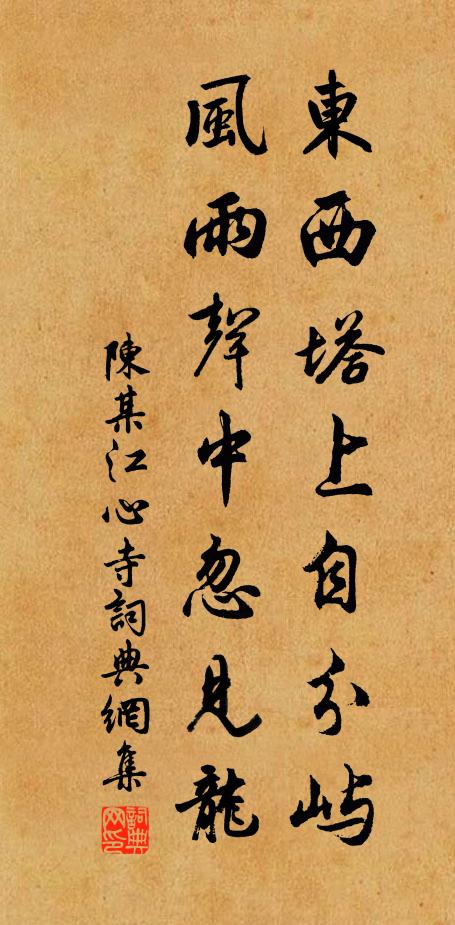 東西塔上自分嶼
風雨聲中忽見龍
陳某江心寺詞典網集
詞典网印